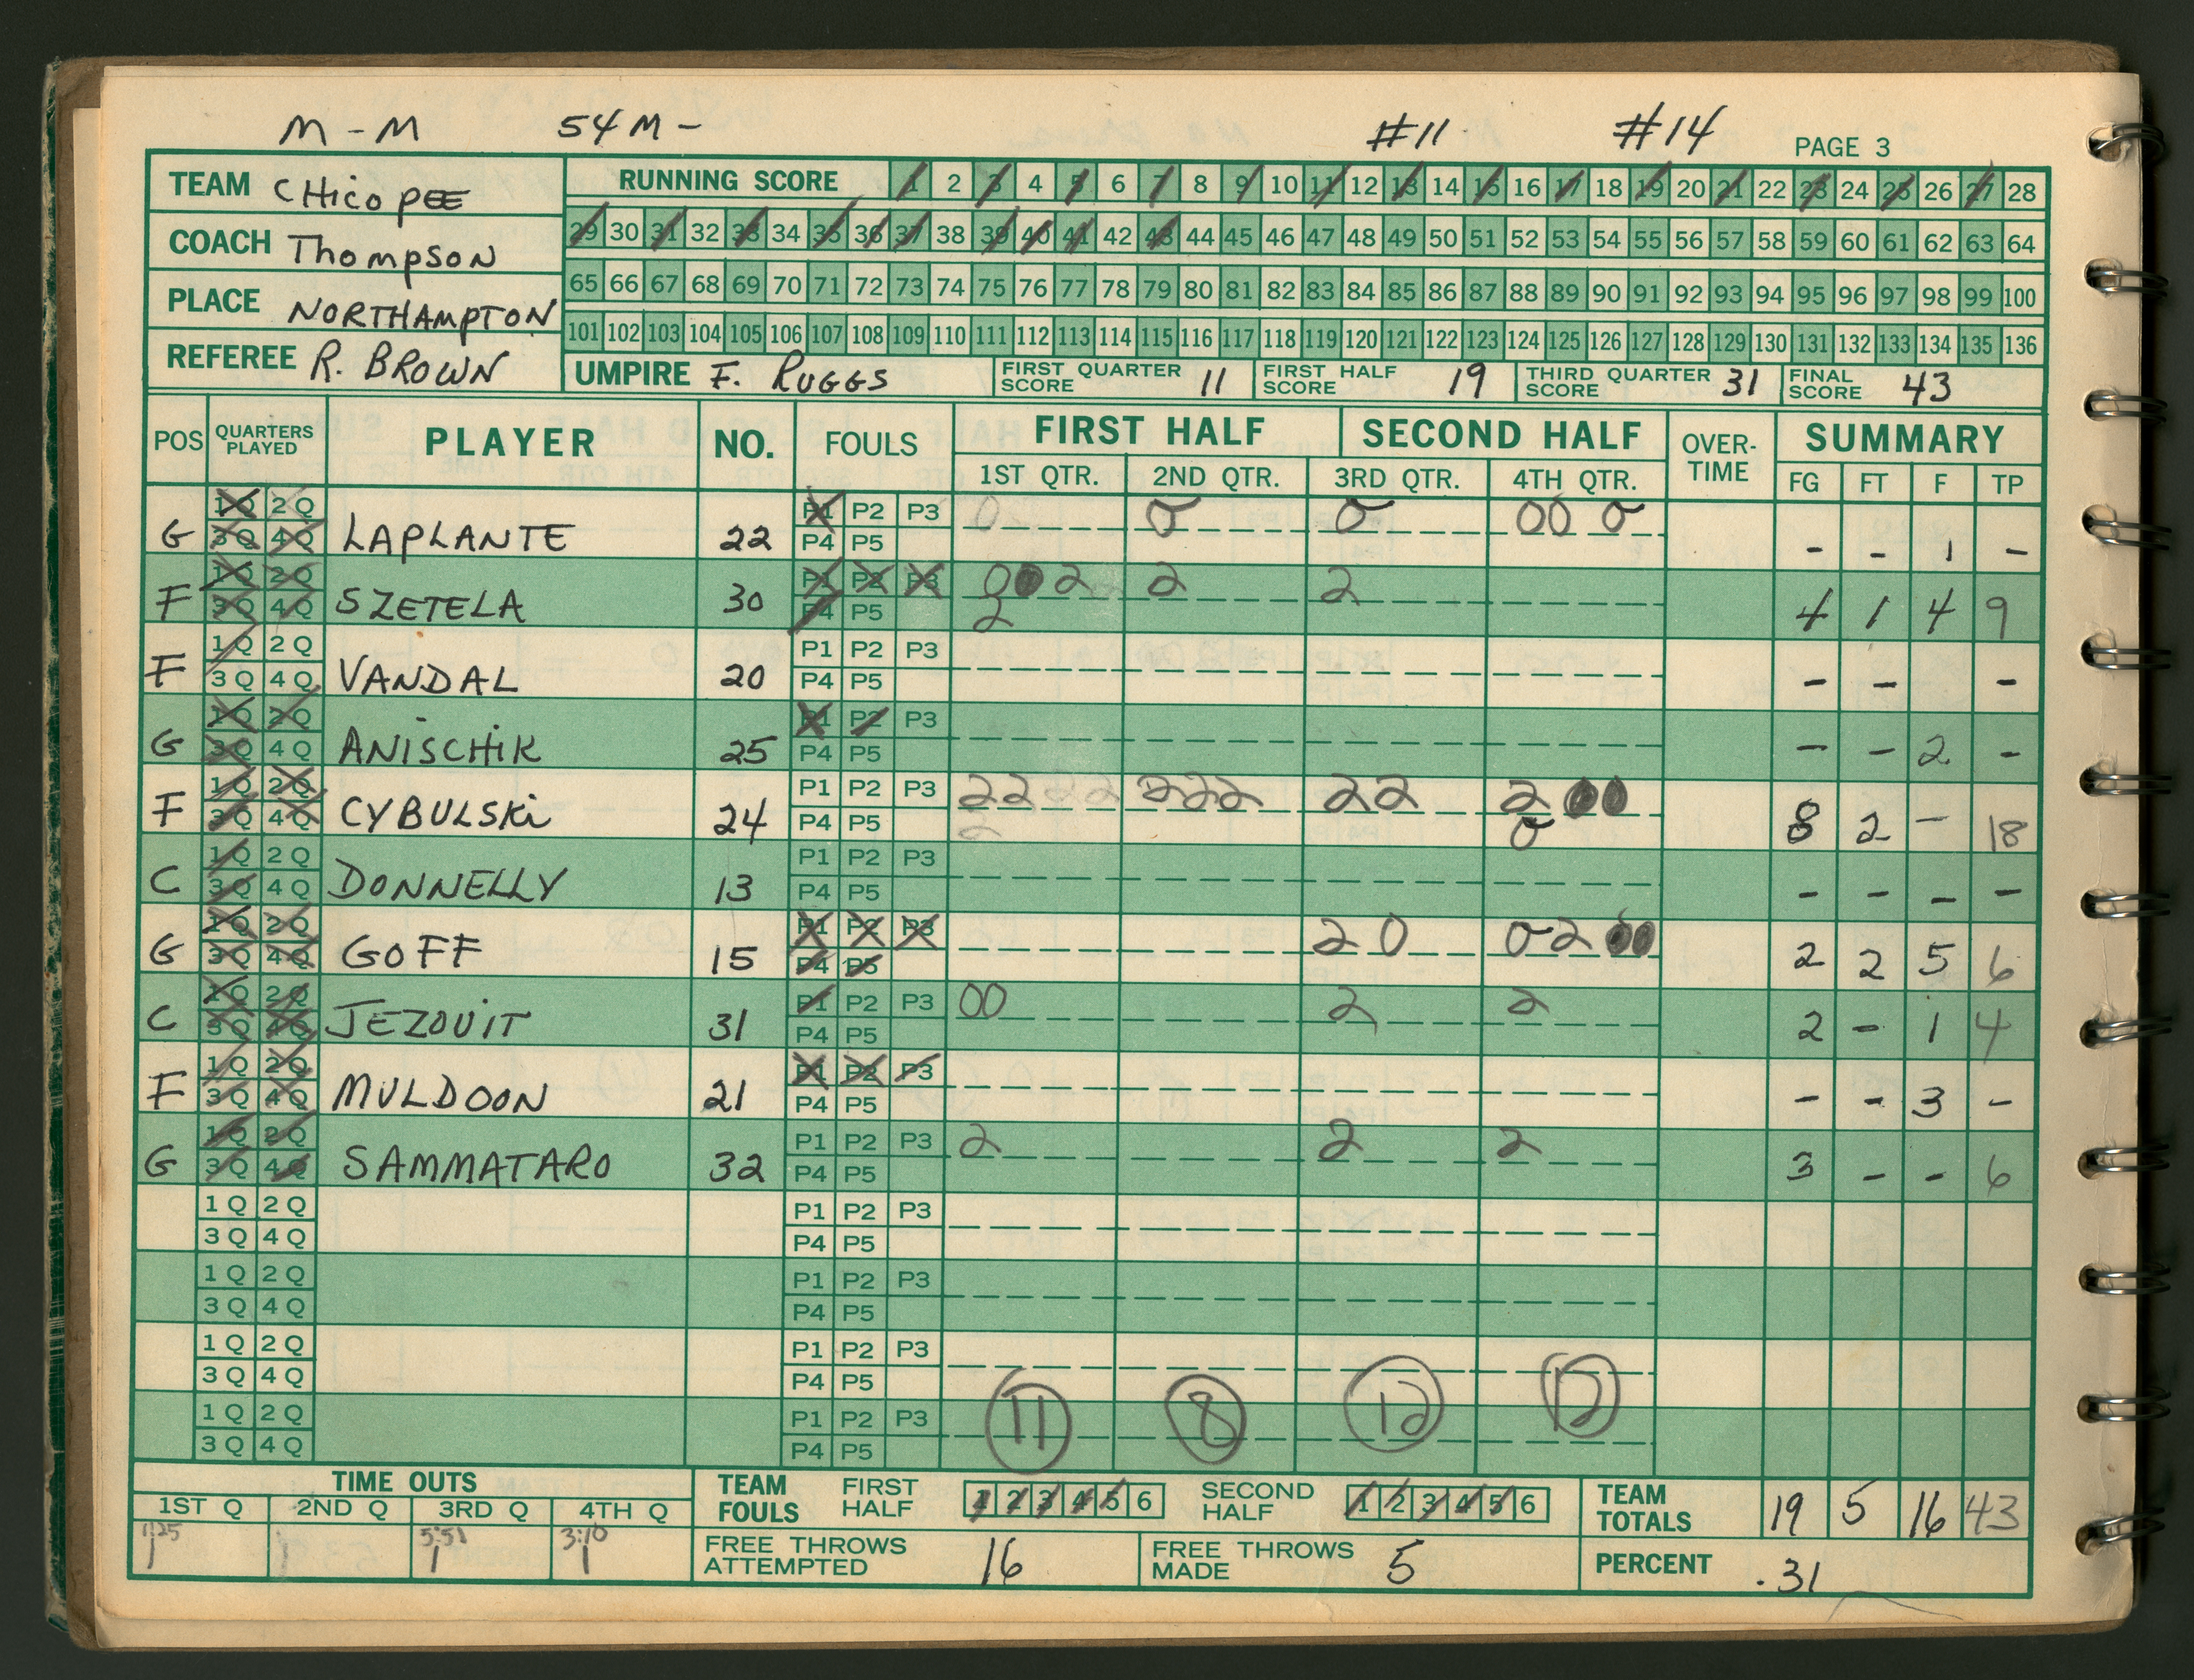 M - M 54 M - #11 #14 PAGE 3
TEAM CHicopEE
COACH Thompson
PLACE NORTHAMPTON
REFEREE R. BROWN
RUNNING SCORE 1 2 3 4 5 6 7 8 9 10 11 12 13 14 15 16 17 18 19 20 21 22 23 24 25 26 27 28
29 30 31 32 33 34 35 36 37 38 39 40 41 42 43 44 45 46 47 48 49 50 51 52 53 54 55 56 57 58 59 60 61 62 63 64
65 66 67 68 69 70 71 72 73 74 75 76 77 78 79 80 81 82 83 84 85 86 87 88 89 90 91 92 93 94 95 96 97 98 99 100
101 102 103 104 105 106 107 108 109 110 111 112 113 114 115 116 117 118 119 120 121 122 123 124 125 126 127 128 129 130 131 132 133 134 135 136
UMPIRE F. RUGGS FIRST QUARTER SCORE 11 FIRST HALF SCORE 19 THIRD QUARTER SCORE 31 FINAL SCORE 43
POS QUARTERS PLAYED PLAYER NO. FOULS FIRST HALF SECOND HALF OVER-TIME SUMMARY
1ST QTR. 2ND QTR. 3RD QTR. 4TH QTR. FG FT F TP
1Q 2Q P1 P2 P3 0 0 0 00 0
G 3Q 4Q LAPLANTE 22 P4 P5 - - 1 -
1Q 2Q P1 P2 P3 002 2 2
F 3Q 4Q SZETELA 30 P4 P5 2 4 1 4 9
1Q 2Q P1 P2 P3
F 3Q 4Q VANDAL 20 P4 P5 - - -
1Q 2Q P1 P2 P3
G 3Q 4Q ANISCHiK 25 P4 P5 - - 2 -
1Q 2Q P1 P2 P3 2222 222 22 2 00
F 3Q 4Q CYBULSKi 24 P4 P5 2 0 8 2 - 18
1Q 2Q P1 P2 P3
C 3Q 4Q DONNELLY 13 P4 P5 - - - -
1Q 2Q P1 P2 P3 20 02 00
G 3Q 4Q GOFF 15 P4 P5 2 2 5 6
1Q 2Q P1 P2 P3 00 2 2
C 3Q 4Q JEZOUiT 31 P4 P5 2 - 1 4
1Q 2Q P1 P2 P3
F 3Q 4Q MULDOON 21 P4 P5 - - 3 -
1Q 2Q P1 P2 P3 2 2 2
G 3Q 4Q SAMMATARO 32 P4 P5 3 - - 6
1Q 2Q P1 P2 P3
3Q 4Q P4 P5
1Q 2Q P1 P2 P3
3Q 4Q P4 P5
1Q 2Q P1 P2 P3
3Q 4Q P4 P5
1Q 2Q P1 P2 P3 11 8 12 12
3Q 4Q P4 P5
TIME OUTS
1ST Q 2ND Q 3RD Q 4TH Q
1:25 5:51 3:10
1 1 1 1
TEAM FOULS FIRST HALF 1 2 3 4 5 6 SECOND HALF 1 2 3 4 5 6 TEAM TOTALS 19 5 16 43
FREE THROWS ATTEMPTED 16 FREE THROWS MADE 5 PERCENT .31